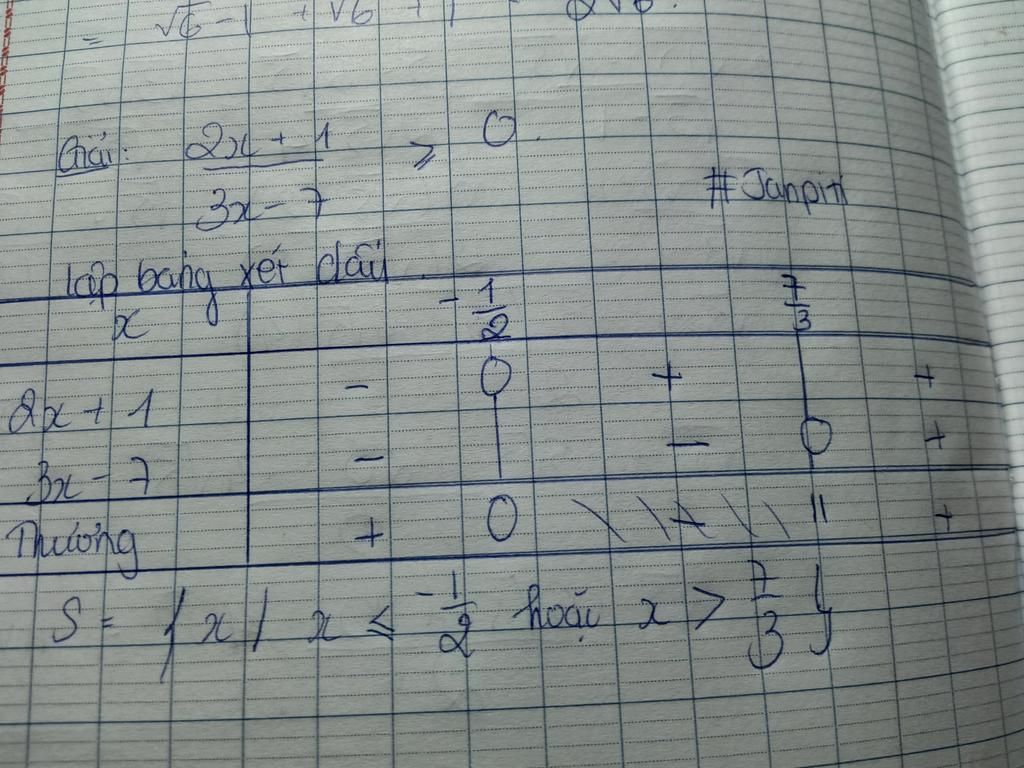 = √6 - 1 + √6 + 1 = 2√6.
Giải: (2x + 1)/(3x - 7) ≥ 0.
#Janpin
Lập bảng xét dấu
x -1/2 7/3
2x + 1 - 0 + | +
3x - 7 - | - 0 +
Thương + 0 \ \ + \ \ || +
S = { x / x ≤ -1/2 hoặc x > 7/3 }